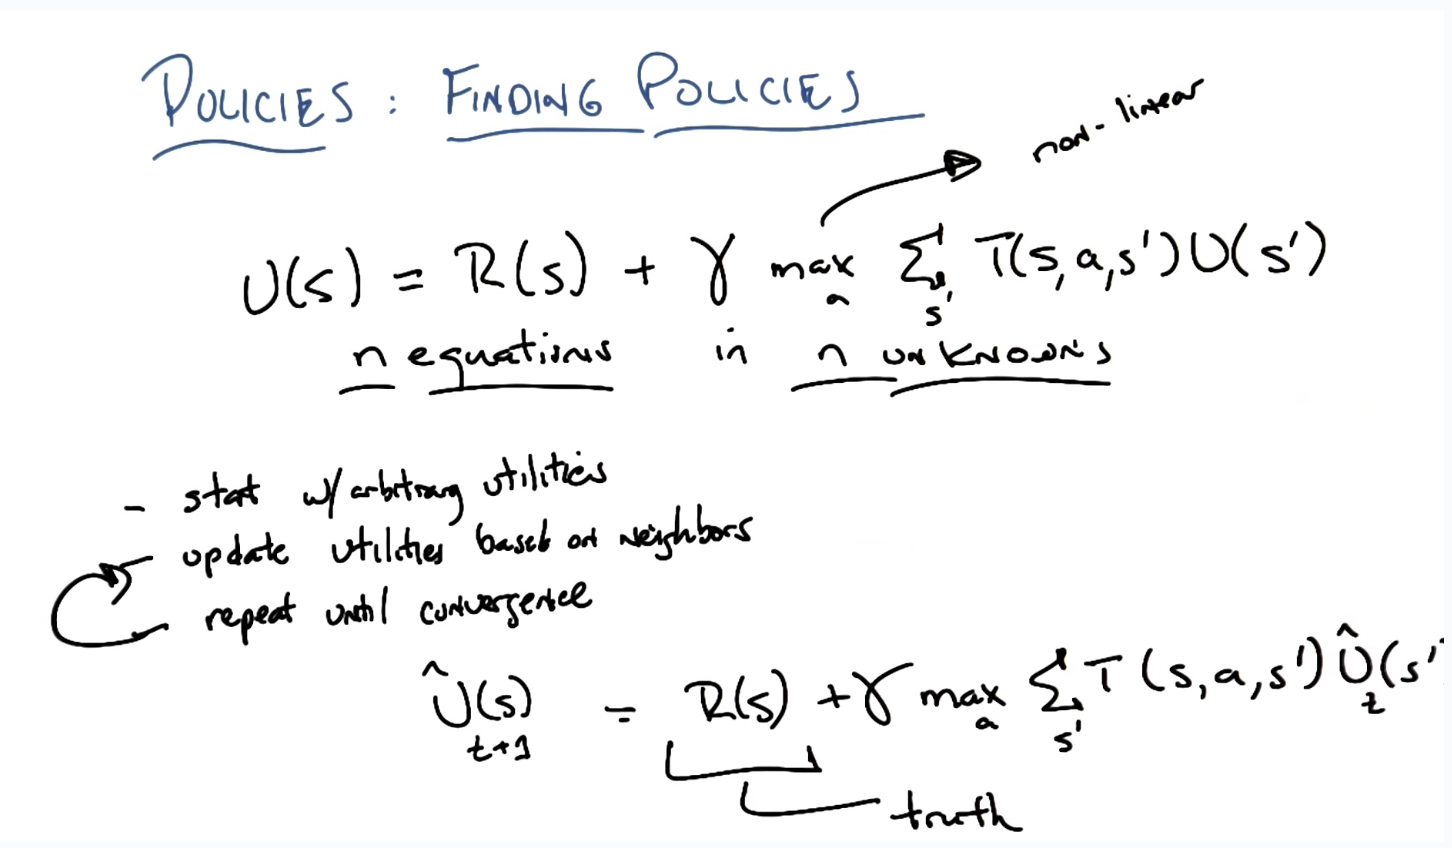 POLICIES: FINDING POLICIES
non-linear
U(s) = R(s) + γ max_a Σ_s' T(s,a,s')U(s')
n equations in n unknowns
- start w/ arbitrary utilities
- update utilities based on neighbors
repeat until convergence
Û_t+1(s) = R(s) + γ max_a Σ_s' T(s,a,s') Û_t(s'
truth